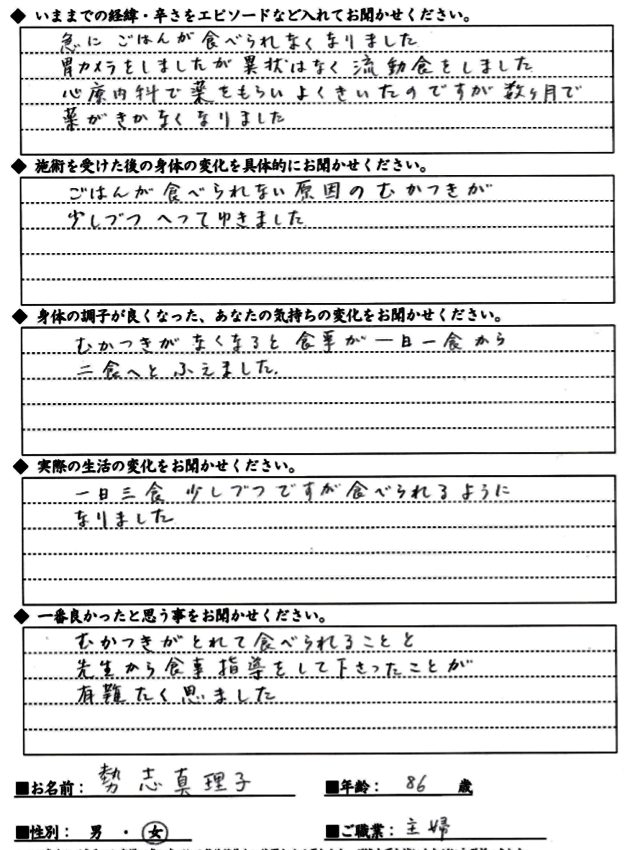 ◆ いままでの経緯・辛さをエピソードなど入れてお聞かせください。
急に ごはんが食べられなくなりました
胃カメラをしましたが異状はなく流動食をしました
心療内科で薬をもらいよくきいたのですが数ヶ月で
薬がきかなくなりました
◆ 施術を受けた後の身体の変化を具体的にお聞かせください。
ごはんが食べられない原因のむかつきが
少しづつへってゆきました
◆ 身体の調子が良くなった、あなたの気持ちの変化をお聞かせください。
むかつきがなくなると食事が一日一食から
二食へとふえました.
◆ 実際の生活の変化をお聞かせください。
一日三食 少しづつですが食べられるように
なりました
◆ 一番良かったと思う事をお聞かせください。
むかつきがとれて食べられることと
先生から食事指導をして下さったことが
有難たく思いました
■お名前: 勢志真理子 ■年齢: 86 歳
■性別: 男 ・ 女 ■ご職業: 主婦